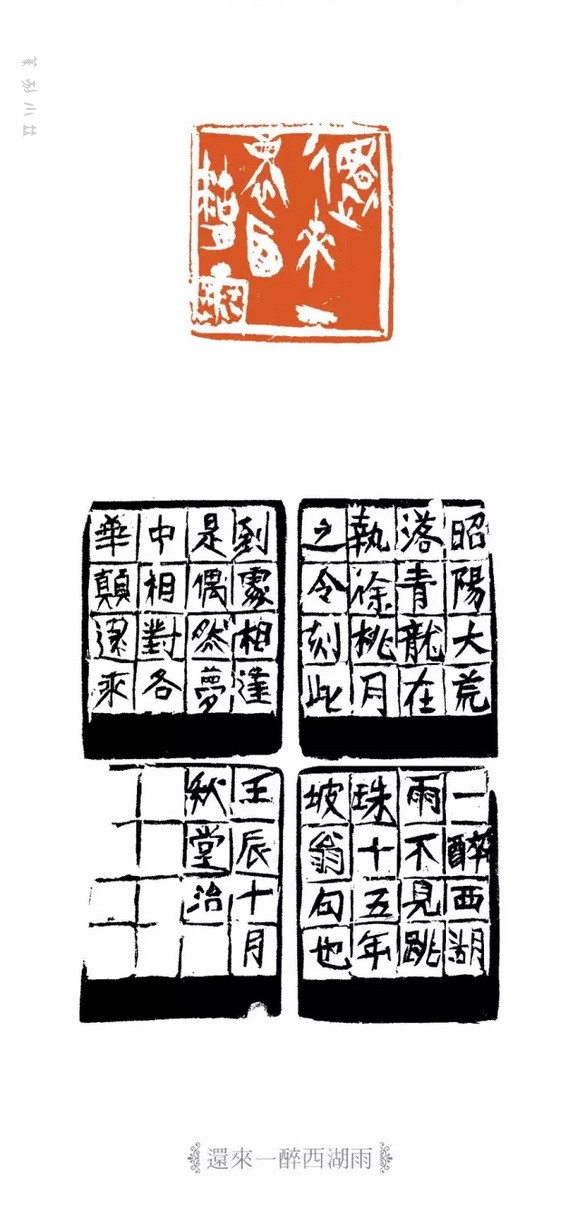 還來一
醉西
湖雨
昭陽大荒
落青龍在
執徐桃月
之令刻此
到處相逢
是偶然夢
中相對各
華顛還來
一醉西湖
雨不見跳
珠十五年
坡翁句也
壬辰十月
秋堂治
還來一醉西湖雨